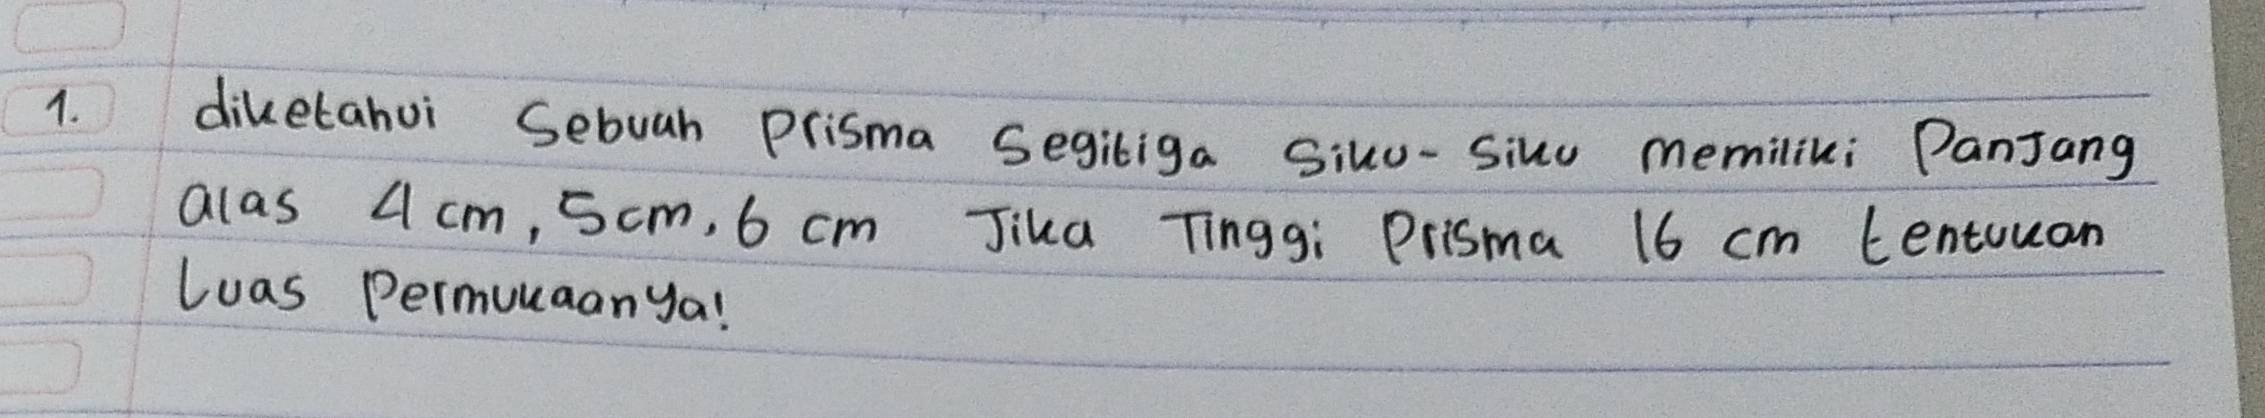 1. diketahui Sebuah Prisma Segitiga Siku-Siku memiliki Panjang
alas 4 cm, 5 cm, 6 cm Jika Tinggi Prisma 16 cm tentukan
Luas Permukaanya!